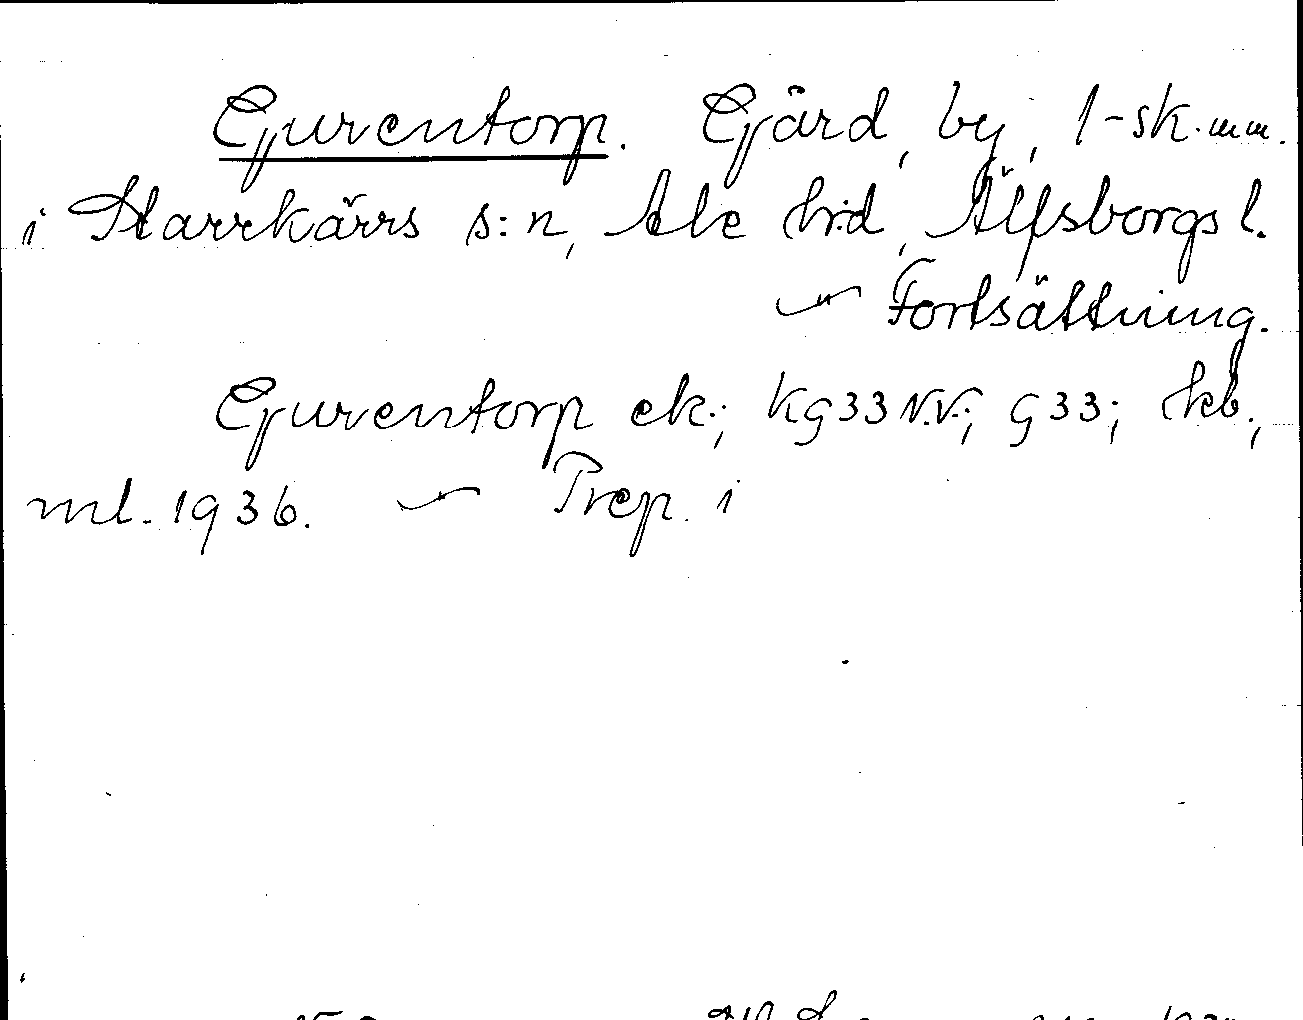 Gurentorp. Gård, by, 1-sk. mm.
i Starrkärrs s:n, Ale hrd, Älfsborgs l.
— Fortsättning.
Gurentorp ek.; Kg33 N.V.; g33; hkb.,
ml. 1936. — Prep. i